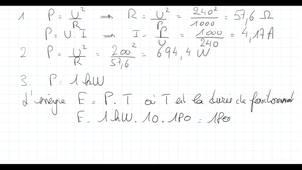 1. P = U²/R → R = U²/P = 240²/1000 = 57,6 Ω
P = U I → I = P/U = 1000/240 = 4,17A
2 P = U²/R = 200²/57,6 = 694,4 W
3. P = 1 kW
L'énergie E = P . T où T est la durée de
E = 1 kW . 10 . 180 = 180